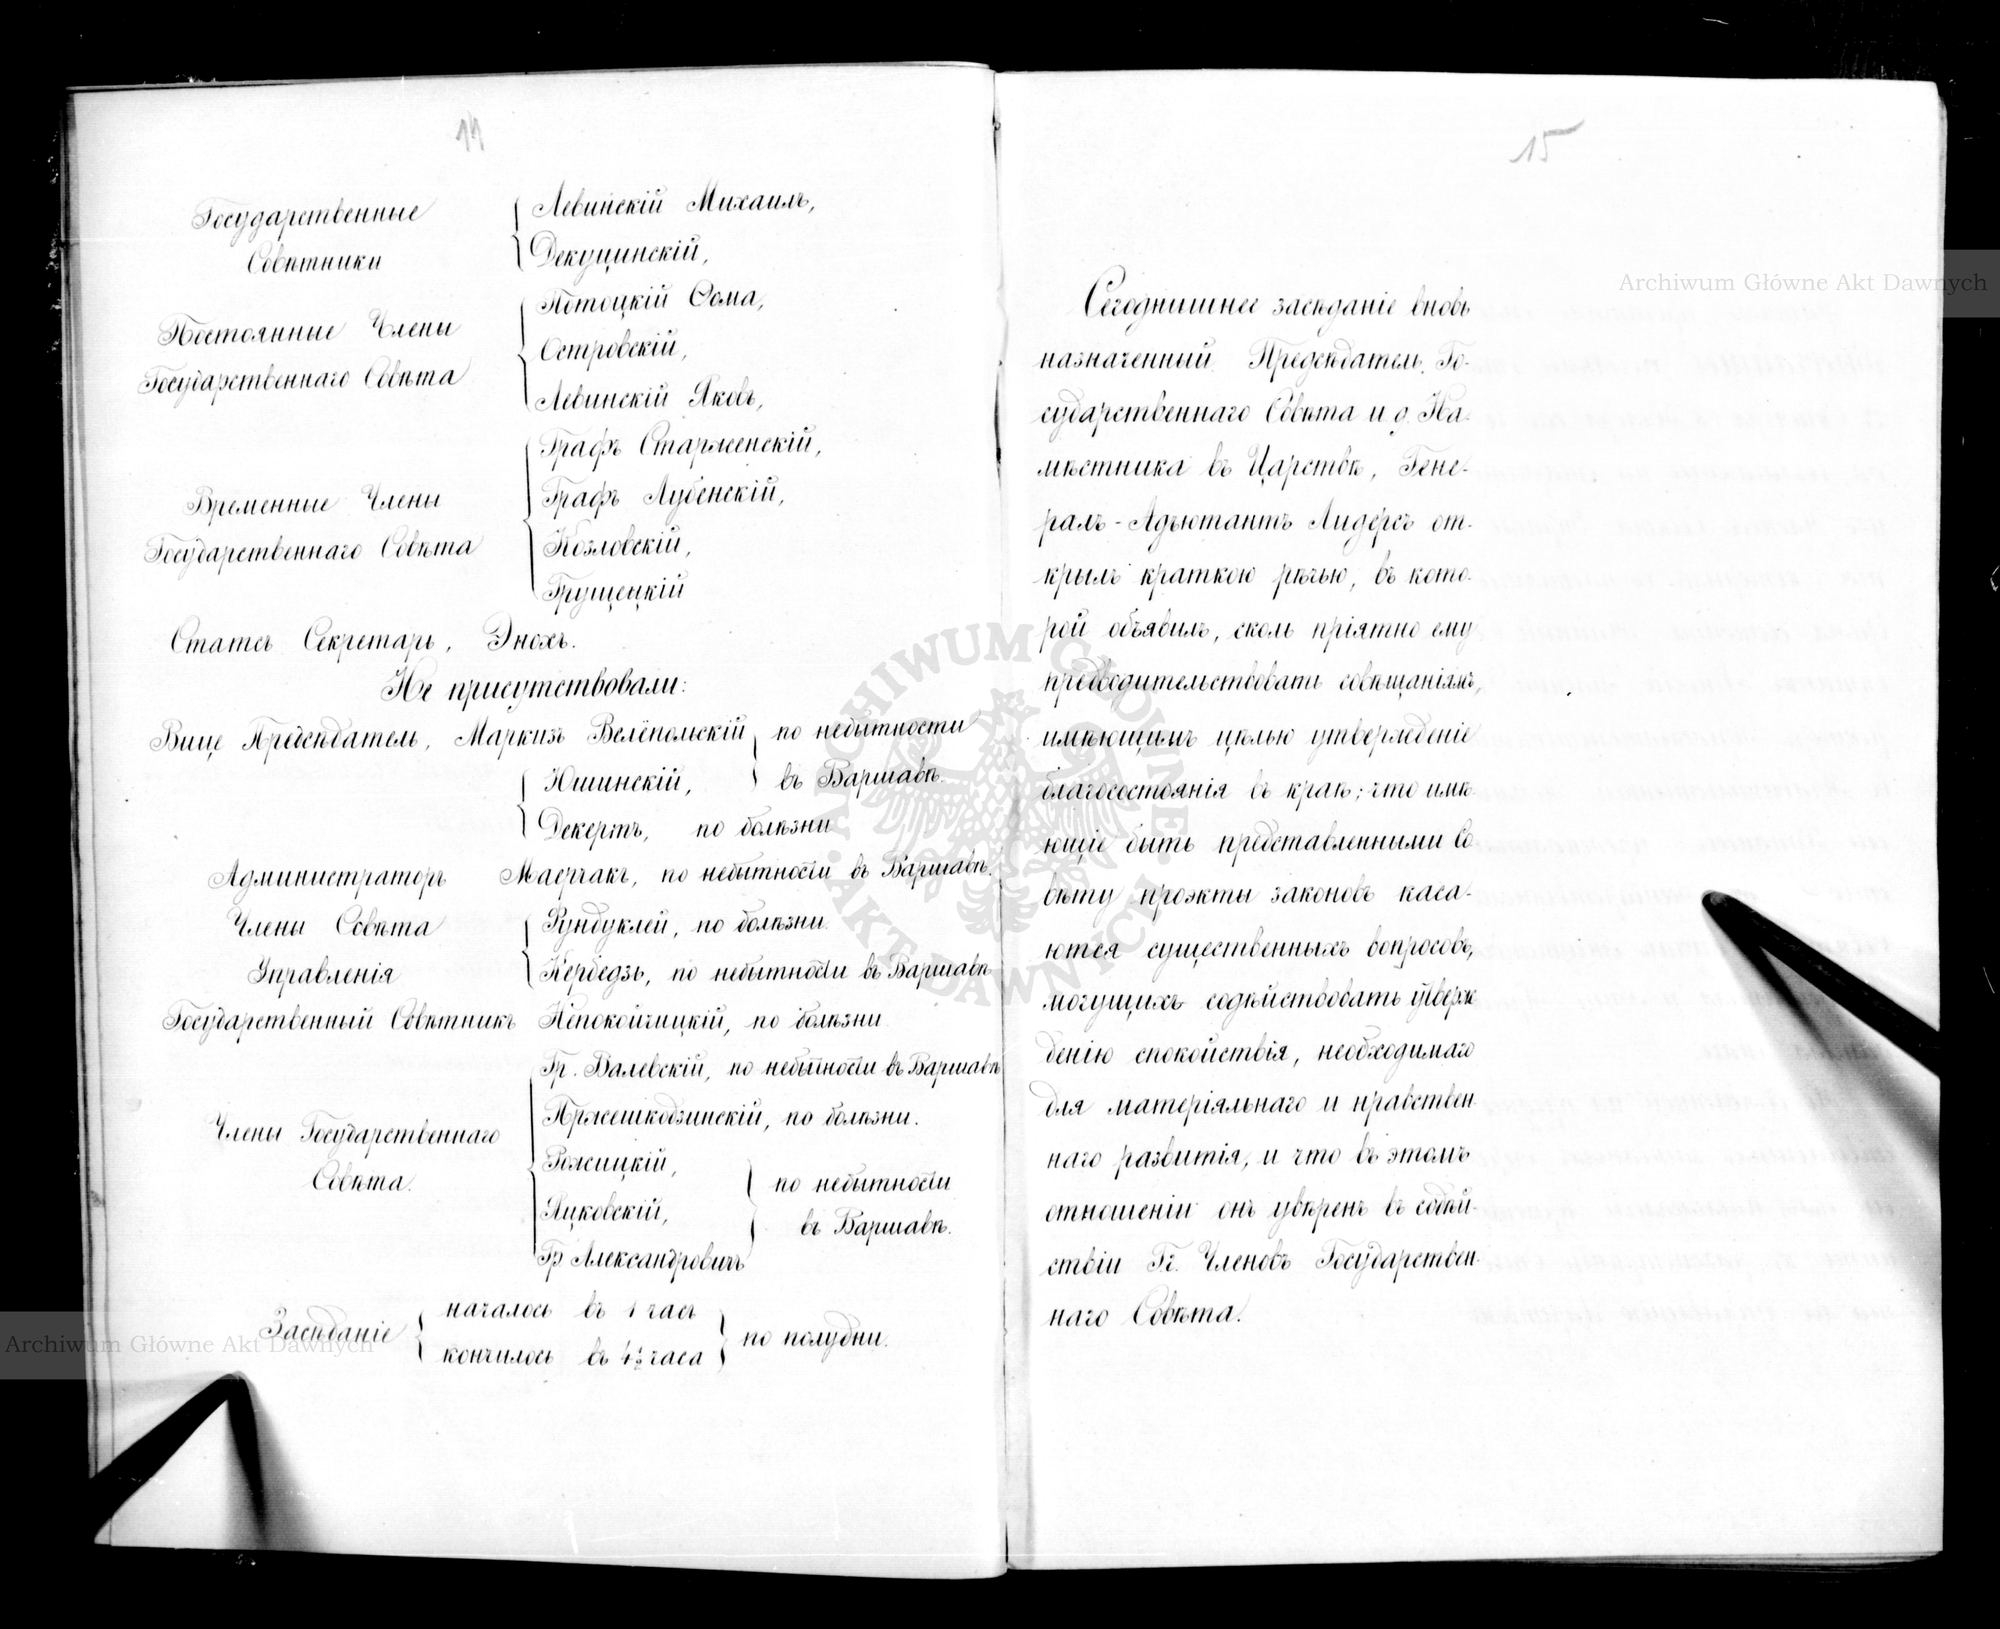 11
Государственные
Совѣтники
Левинскій Михаилъ,
Декуцинскій,
Постоянные Члены
Государственнаго Совѣта
Потоцкій Ѳома,
Островскій,
Левинскій Яковъ,
Временные Члены
Государственнаго Совѣта
Графъ Старженскій,
Графъ Лубенскій,
Козловскій,
Грущецкій
Статсъ Секретарь, Энохъ.
Не присутствовали:
Вице Предсѣдатель, Маркизъ Велёпольскій
Юшинскій,
по небытности
въ Варшавѣ.
Декертъ, по болѣзни
Администраторъ Маерчакъ, по небытности въ Варшавѣ.
Члены Совѣта
Управленія
Фундуклей, по болѣзни.
Кербедзь, по небытности въ Варшавѣ
Государственный Совѣтникъ Непокойчицкій, по болѣзни
Члены Государственнаго
Совѣта.
Гр. Валевскій, по небытности въ Варшавѣ
Пржешкодзинскій, по болѣзни.
Рожицкій,
Яцковскій,
Гр Александровичъ
по небытности
въ Варшавѣ.
Засѣданіе
началось въ 1 часъ
кончилось въ 4½ часа
по полудни.
15
Сегоднишнее засѣданіе вновь
назначенный Предсѣдатель Го-
сударственнаго Совѣта и д. На-
мѣстника въ Царствѣ, Гене-
ралъ-Адъютантъ Лидерсъ от-
крылъ краткою рѣчью, въ кото-
рой объявилъ, сколь пріятно ему
предводительствовать совѣщаніямъ,
имѣющимъ цѣлью утвержденіе
благосостоянія въ краѣ; что имѣ-
ющіе быть представленными Со
вѣту проэкты законовъ каса-
ются существенныхъ вопросовъ,
могущихъ содѣйствовать утверж
денію спокойствія, необходимаго
для матеріяльнаго и нравствен
наго развитія, и что въ этомъ
отношеніи онъ увѣренъ въ содѣй-
ствіи Гг. Членовъ Государствен-
наго Совѣта.
Archiwum Główne Akt Dawnych
Archiwum Główne Akt Dawnych
ARCHIWUM GŁÓWNE
AKT DAWNYCH